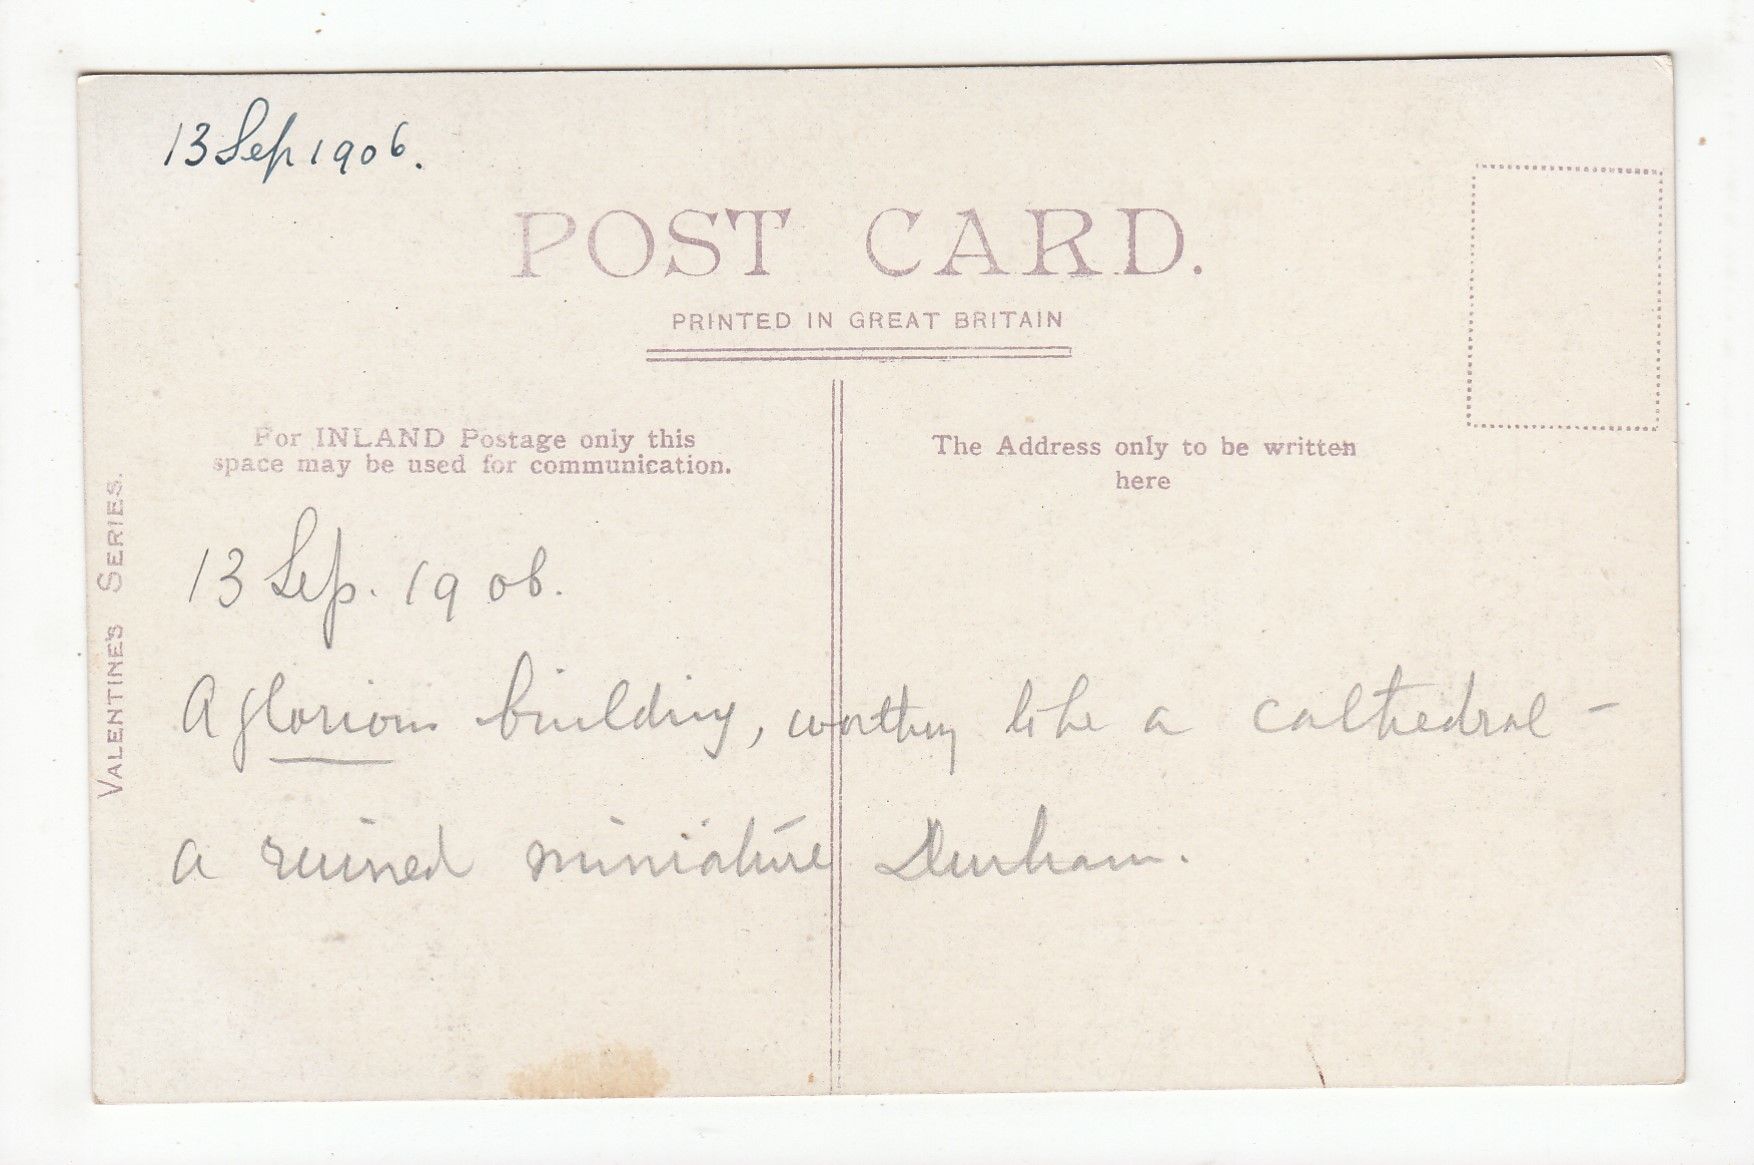 13 Sep 1906.
POST CARD.
PRINTED IN GREAT BRITAIN
For INLAND Postage only this
space may be used for communication.
The Address only to be written
here
VALENTINE'S SERIES.
13 Sep. 1906.
A glorious building, worthy like a cathedral –
a ruined miniature Durham.